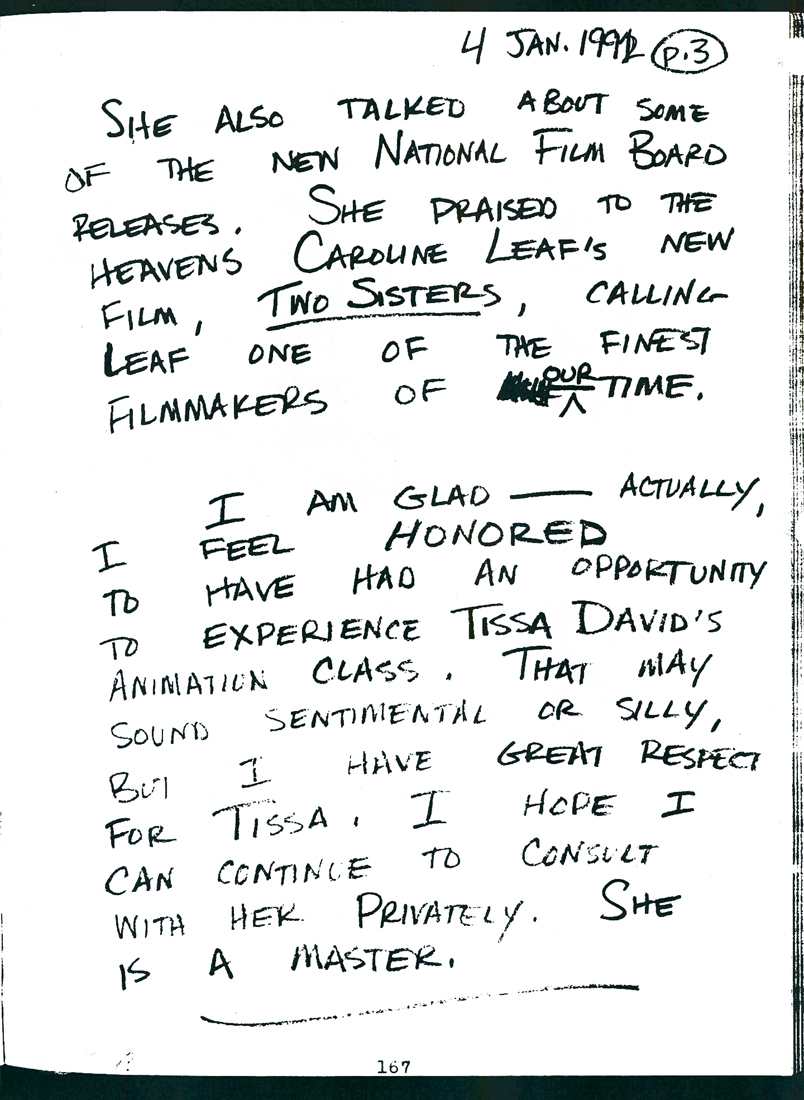 4 JAN. 1992 p.3
SHE ALSO TALKED ABOUT SOME
OF THE NEW NATIONAL FILM BOARD
RELEASES. SHE PRAISED TO THE
HEAVENS CAROLINE LEAF'S NEW
FILM, TWO SISTERS, CALLING
LEAF ONE OF THE FINEST
FILMMAKERS OF OUR TIME.
I AM GLAD — ACTUALLY,
I FEEL HONORED
TO HAVE HAD AN OPPORTUNITY
TO EXPERIENCE TISSA DAVID'S
ANIMATION CLASS. THAT MAY
SOUND SENTIMENTAL OR SILLY,
BUT I HAVE GREAT RESPECT
FOR TISSA. I HOPE I
CAN CONTINUE TO CONSULT
WITH HER PRIVATELY. SHE
IS A MASTER.
167